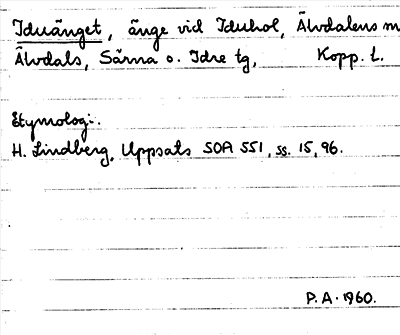 Iduänget, änge vid Iduhol, Älvdalens m
Älvdals, Särna o. Idre tg, Kopp. L.
Etymologi:
H. Lindberg, Uppsats SOA 551, ss. 15, 96.
P.A. 1960.